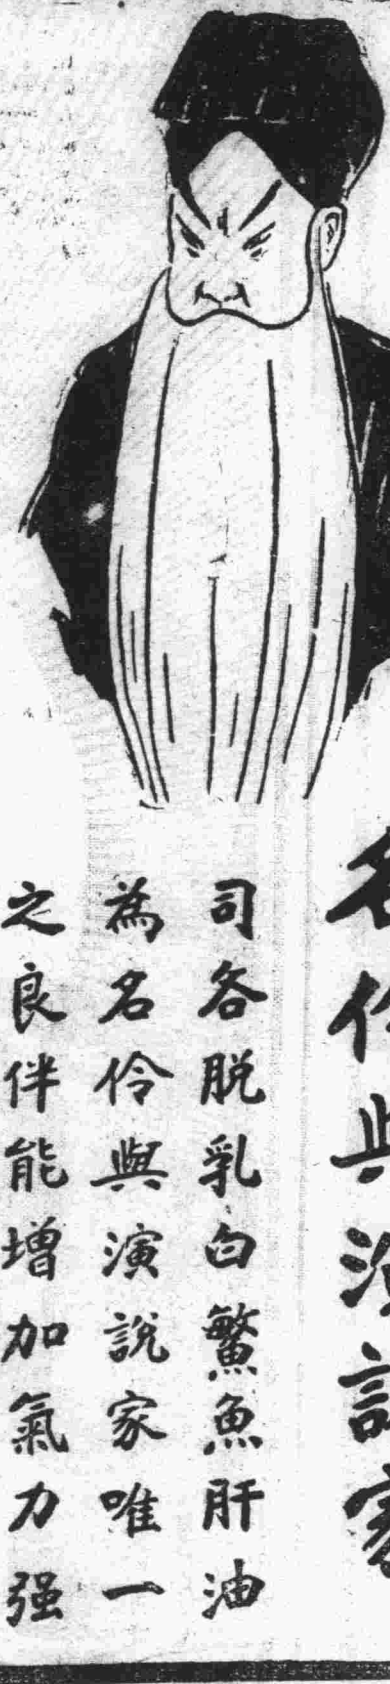 名伶與演說家
司各脫乳白鱉魚肝油
為名伶與演說家唯一
之良伴能增加氣力强